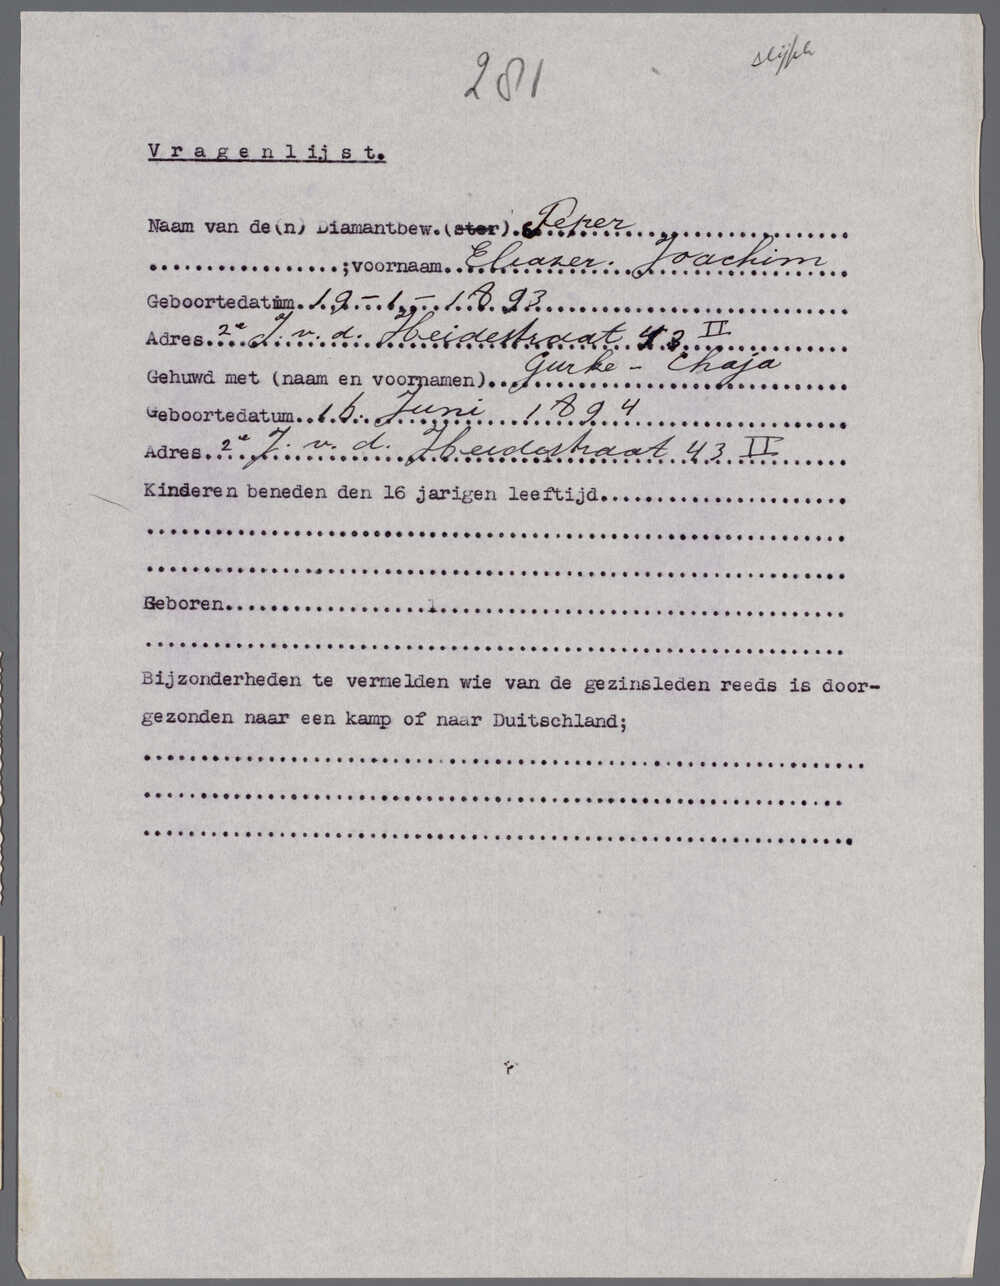 281
V r a g e n l ij s t.
Naam van de(n) Diamantbew.(ster). Peper
;voornaam. Eleazer. Joachim
Geboortedatum. 19-1-1893
Adres. 2e J. v. d. Heidestraat 43 II
Gehuwd met (naam en voornamen). Gurke - Chaja
Geboortedatum. 16. Juni 1894
Adres. 2e J. v. d. Heidestraat 43 II
Kinderen beneden den 16 jarigen leeftijd.
Geboren.
Bijzonderheden te vermelden wie van de gezinsleden reeds is door-
gezonden naar een kamp of naar Duitschland;